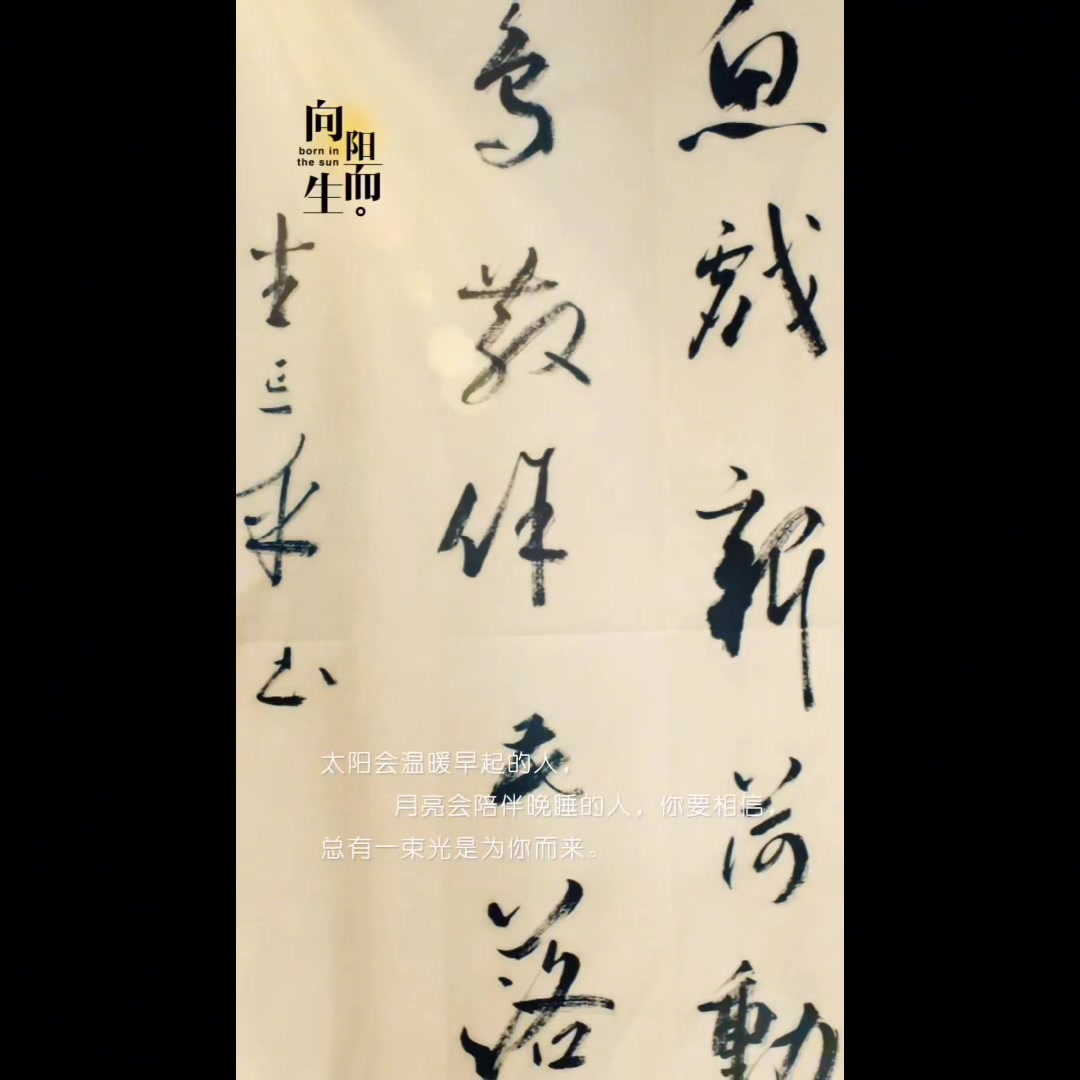 鱼戲新荷動
鸟散餘花落
向阳而生。
born in
the sun
太阳会温暖早起的人，
月亮会陪伴晚睡的人，你要相信，
总有一束光是为你而来。